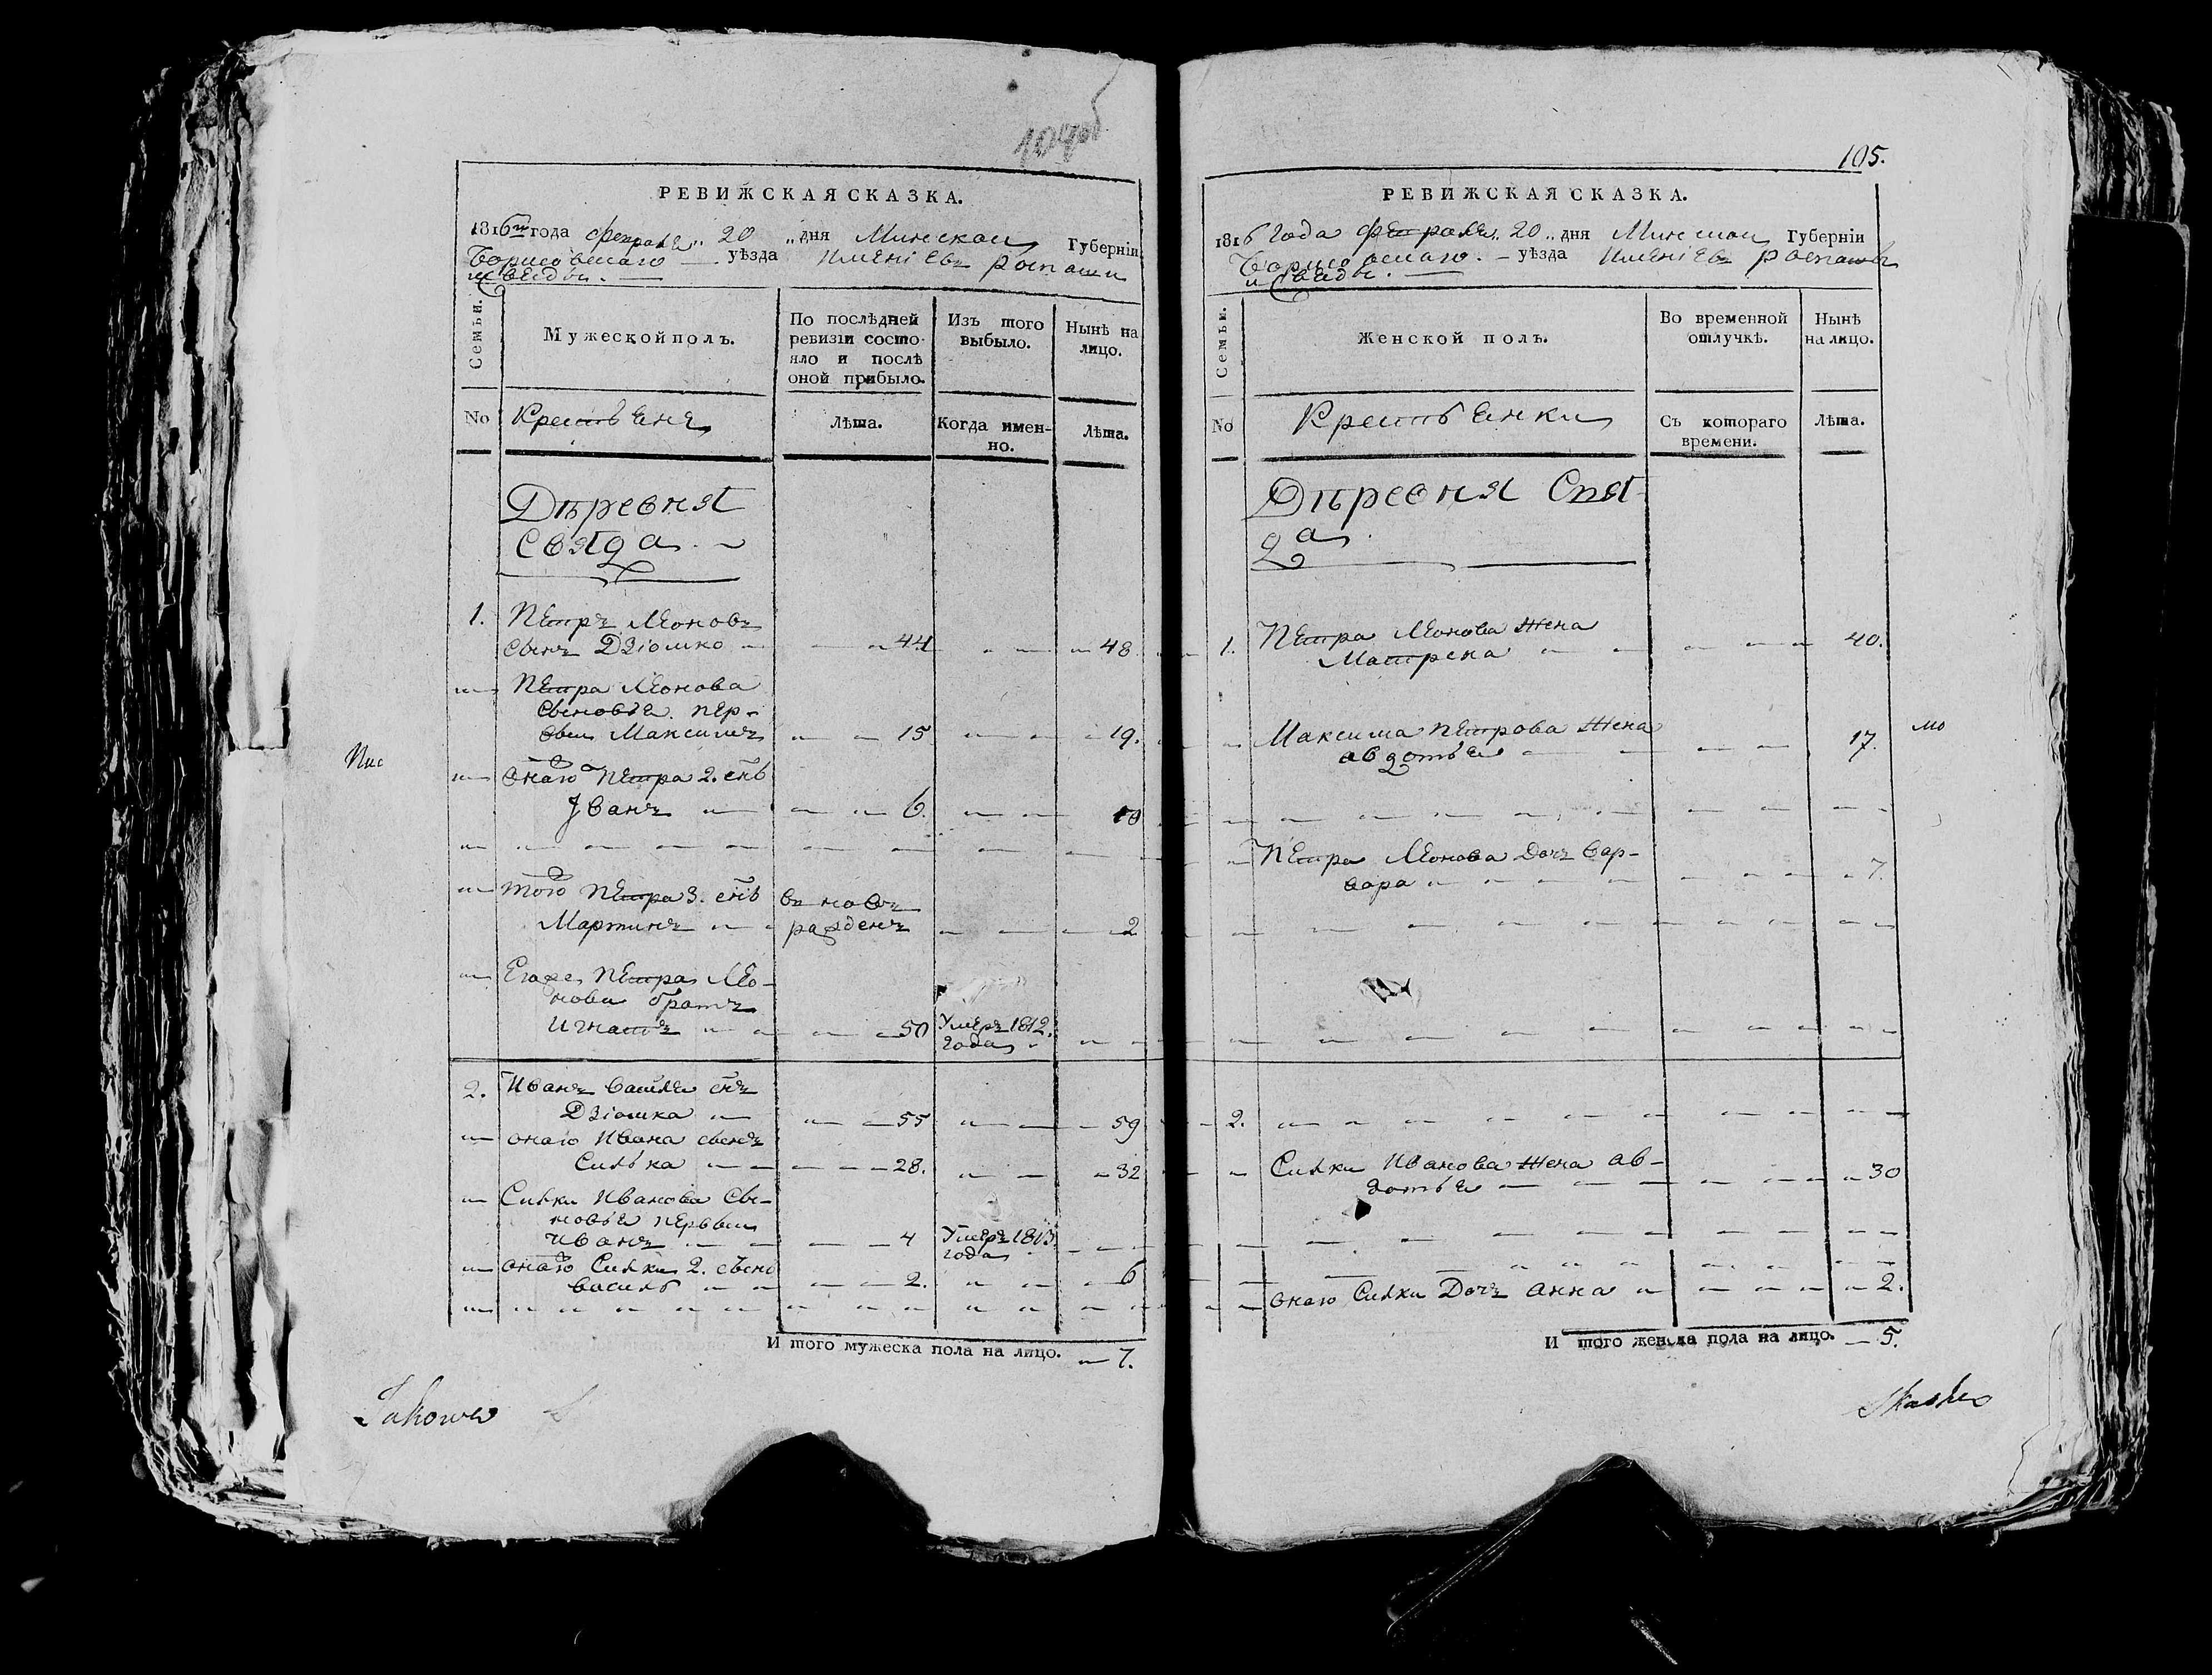 РЕВИЖСКАЯ СКАЗКА.
1816го года февраля „ 20 „ дня Минской Губерніи
Борисовскаго — уѣзда имѣніевъ
Семьи.
Мужеской полъ.
По послѣдней ревизіи состо-
яло и послѣ
оной прибыло.
Изъ того
выбыло.
Нынѣ на
лицо.
No
Крестьяне
Лѣта.
Когда имен-
но.
Лѣта.
Дѣревня
Свяда
1. Петръ Леоновъ
сынъ Дзіомко — 44 — 48
Петра Леонова
сыновья пер-
вый Максимъ — 15 — 19.
онаго Петра 2. снъ
Іванъ — 6. — 10
того Петра 3. снъ вновь
Мартинъ — рожденъ — 2
Его же Петра Лео-
нова братъ
Игнатъ — 50 Умеръ 1812.
года
2. Иванъ Василя снъ
Дзіомка — 55 — 59
онаго Ивана сынъ
Силька — 28. — 32
Сильки Иванова сы-
новья первый
Иванъ — 4 Умеръ 1813
года
онаго Сильки 2. сынъ
Василь — 2. — 6
И того мужеска пола на лицо. — 7.
105.
РЕВИЖСКАЯ СКАЗКА.
1816 года февраля „ 20 „ дня Минской Губерніи
Борисовскаго — уѣзда имѣніевъ
Семьи.
Женской полъ.
Во временной
отлучкѣ.
Нынѣ
на лицо.
No
Крестьянки
Съ котораго
времени.
Лѣта.
Дѣревня Свя-
да
1. Петра Леонова жена
Матрена — 40.
Максима Петрова жена
Авдотья — 17.
Петра Леонова дочь Вар-
вара — 7.
2.
Сильки Иванова жена Ав-
дотья — 30
онаго Сильки дочь Анна — 2.
И того женска пола на лицо. — 5.